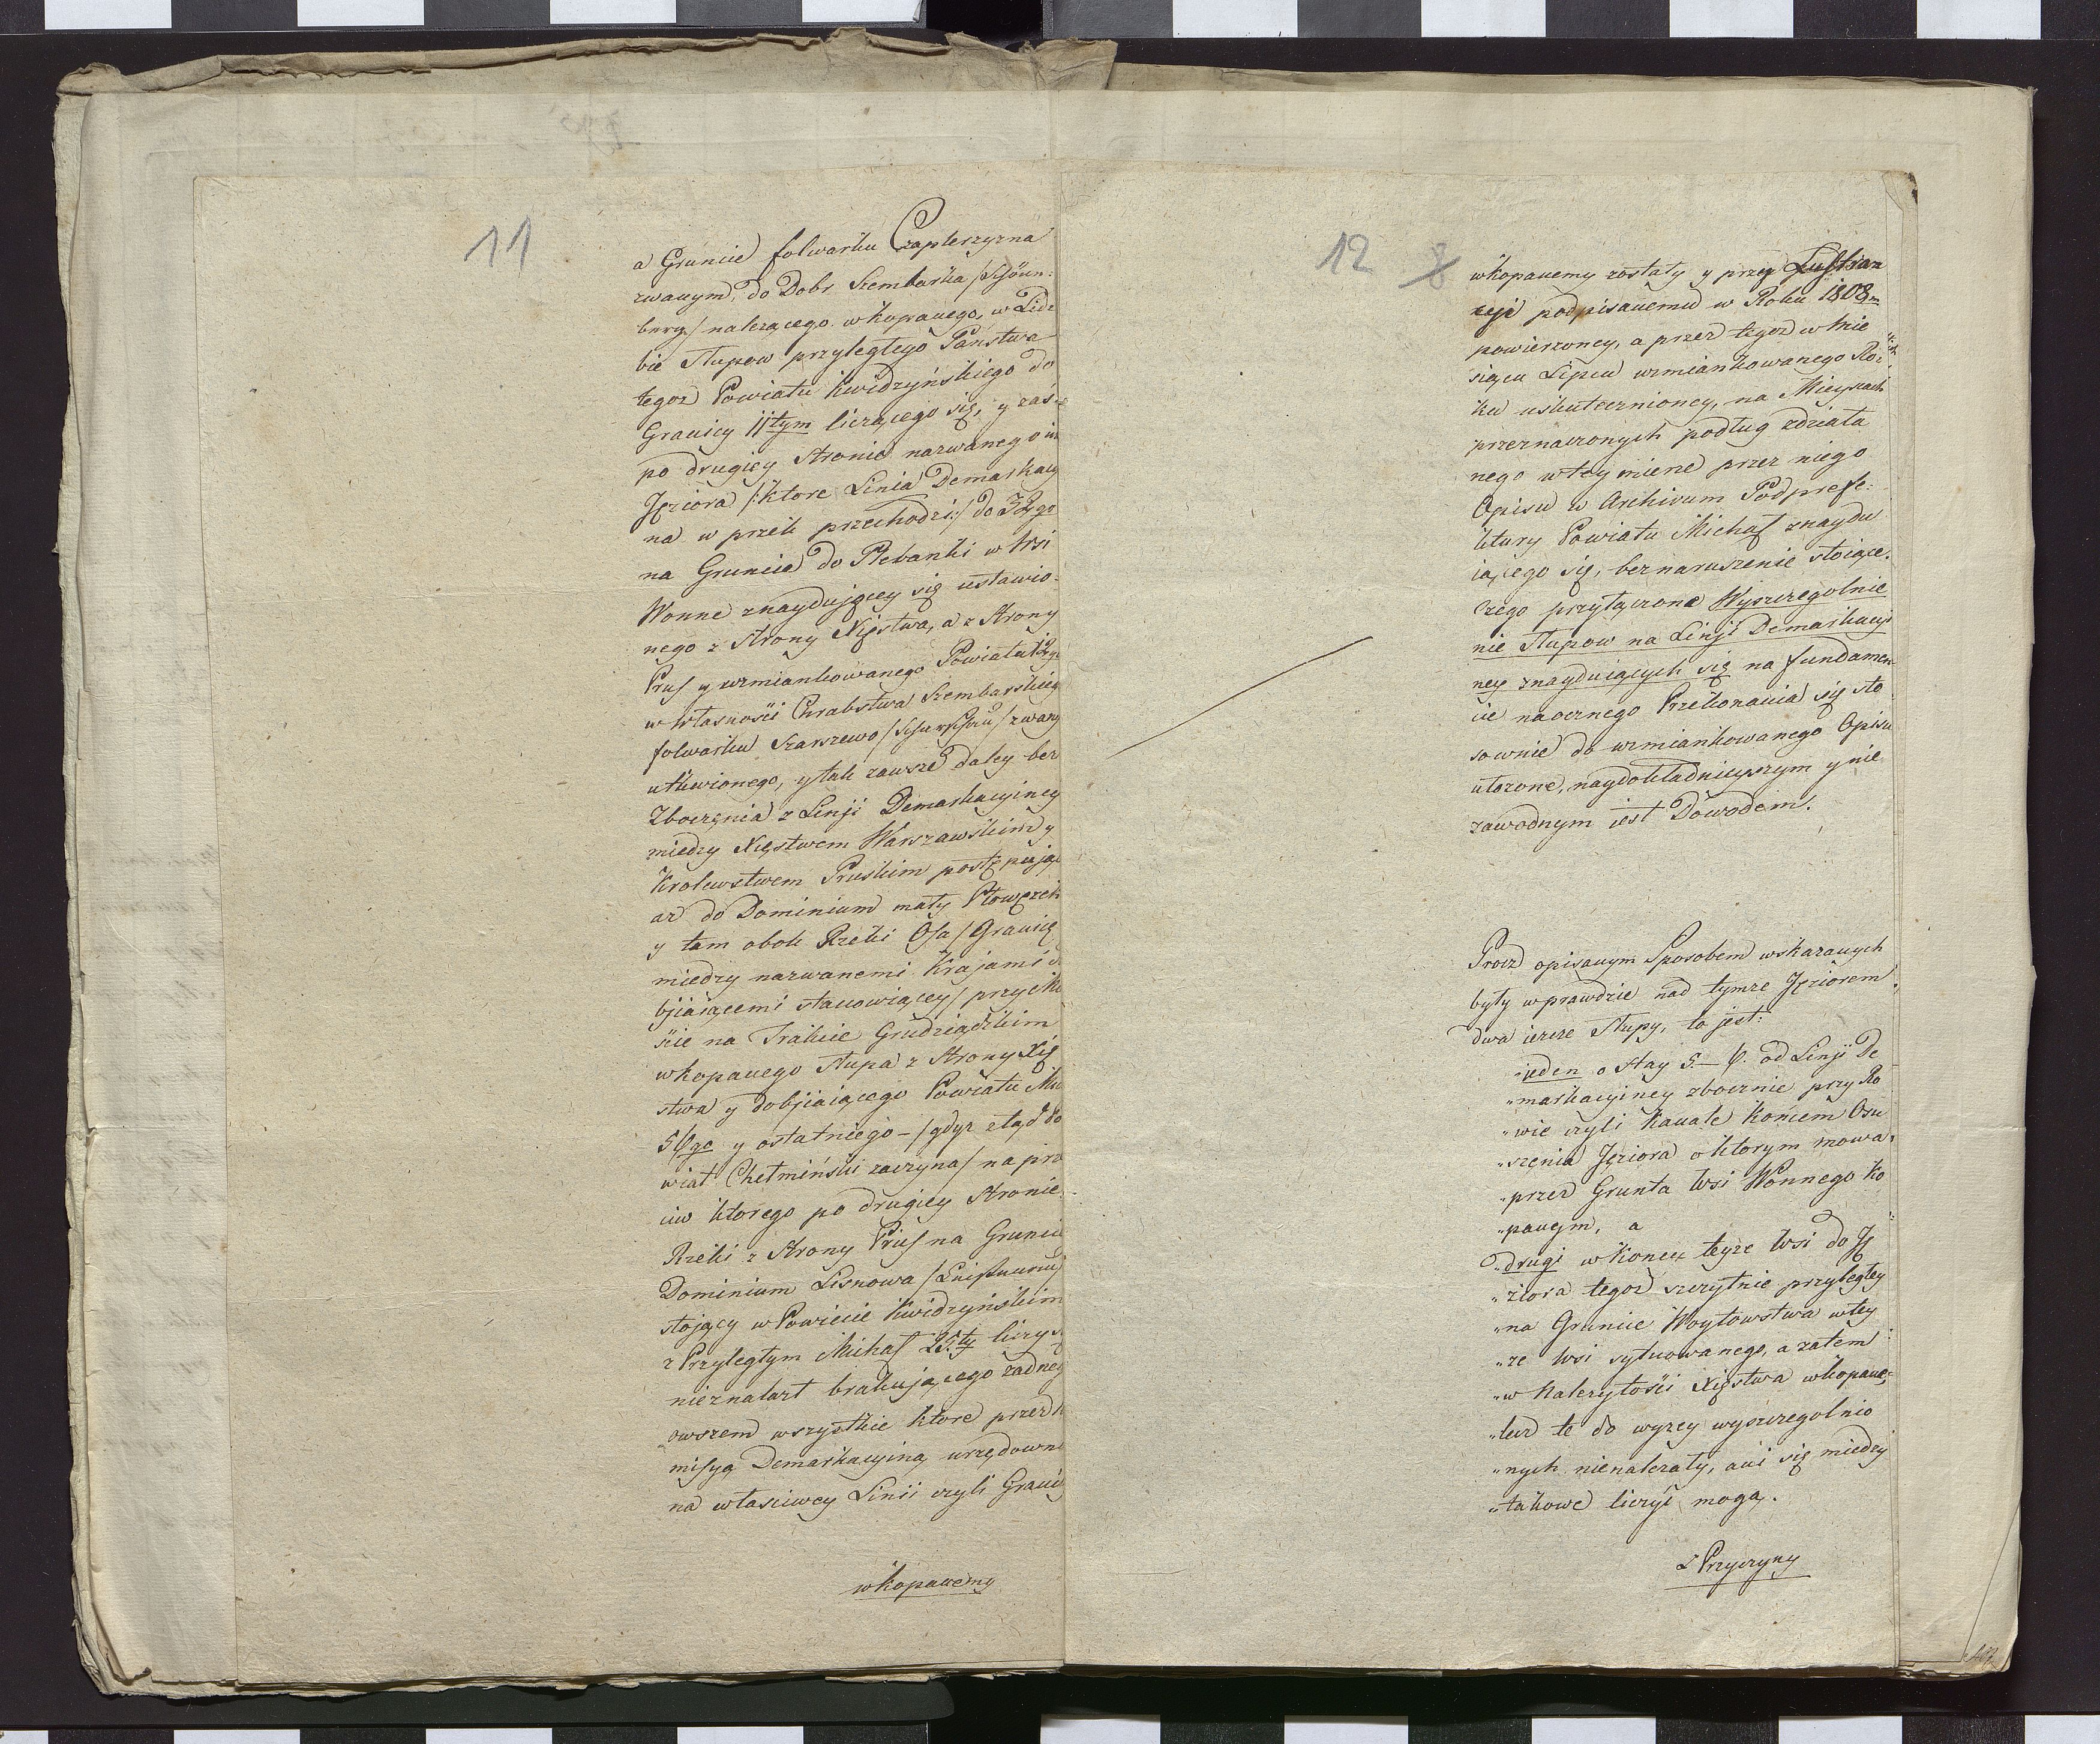 11
a Gruncie folwarku Czapterzyzna
zwanym, do Dobr Szembarka /Schön-
berg/ należącego wkopanego, w Licz
bie Słupow przyległego Państwa
tegoż Powiatu Kwidzyńskiego do
Granicy 11tym liczącego się, y zaś
po drugiey stronie nazwanego
Jęziora /:ktore Linia Demarkacy
na w przek przechodzi:/ do 32go
na Gruncie do Plebanki w Wsi
Wonne znayduiącey się ustawio-
nego z strony Xięstwa, a z Strony
Prus y wzmiankowanego Powiatu
w własności Hrabstwa Szembarskiego
folwarku Szarszewo zwany
utkwionego, y tak zawsze daley bez
Zboczęnia z Linji Demarkacyiney
między Xięstwem Warszawskim y
Krolewstwem Pruskim postępuiąc
aż do Dominium mały Płowęzek
y tam obok Rzeki Osa /Granicę
miedzy nazwanemi Krajami
bjiaiącemi stanowiącey/ przy
ście na Trakcie Grudziądzkim
wkopanego Słupa z Strony Xię
stwa y dobjiaiącego Powiatu Mi
56go y ostatniego – /gdyż ztąd Po
wiat Chełmiński zaczyna/ na prze
ciw ktorego po drugiey Stronie
Rzeki z Strony Prus na Gruncie
Dominium Lisnowa
stojący w Powiecie Kwidzyńskim
z Przyległym Michał 25ty liczy
nieznalazł brakującego żadneg
owszem wszystkie ktore przez
misyą Demarkacyiną urzędowni
na własciwey Linii czyli Granic
wkopanemy
12 8
wkopanemy zostały y przez Lustran
cyi podpisanemu w Roku 1808m
powierzoney, a przez tegoż w Mie
siącu Lipcu wzmiankowanego Ro-
ku uskutecznioney, na Mieyscach
przeznaczonych podług zdziała
nego wteymierze przez niego
Opisu w Archivum Podprefe-
ktury Powiatu Michał znaydu
iącego się, beznaruszenie stoiące.
Czego przyłączone Wyszczegolnie
nie Słupow na Linji Demarkacyi
ney znayduiących się na fundamen
cie naocznego Przekonania się sto
sownie do wzmiankowanego Opisu
utozone, naydokładnieyszym y nie
zawodnym iest Dowodem.
Procz opisanym Sposobem wskazanych
były wprawdzie nad tymże Jęziorem
dwa ieszcze Słupy, to jest:
„ieden o stay 5–6. od Linji De
„markacyiney zbocznie przy Ro
„wie czyli Kanale koncem Osu
„szęnia Jęziora o ktorym mowa,
„przez Grunta Wsi Wonnego ko
„panym, a
„drugi w koncu teyże Wsi do Ję
„ziora tegoż szczytnie przyległey
„na Gruncie Woytowstwa wtey
„ze Wsi sytuowanego, a zatem
„w należytości Xięstwa wkopane,
„lecz te do wyzey wyszczegolnio
„nych nienależały, ani się miedzy
„takowe liczyć mogą.
Z Przyczyny